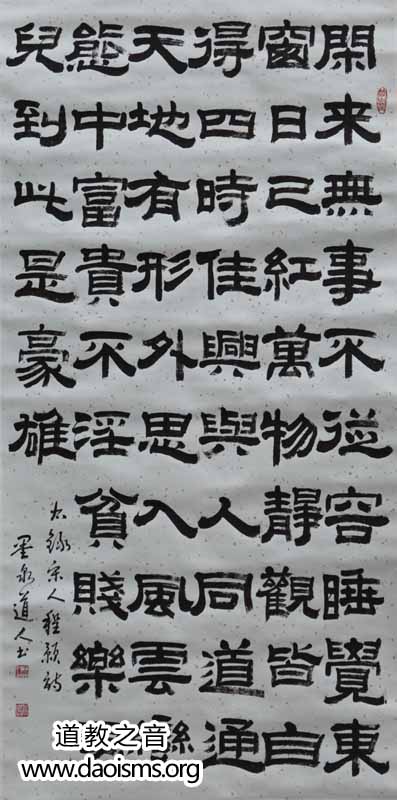 閑来無事不從容睡覺東
窗日已紅萬物靜觀皆自
得四時佳興與人同道通
天地有形外思入風雲變
態中富貴不淫貧賤樂
兒到此是豪雄
右錄宋人程顥詩
墨泉道人书
道教之音
www.daoisms.org